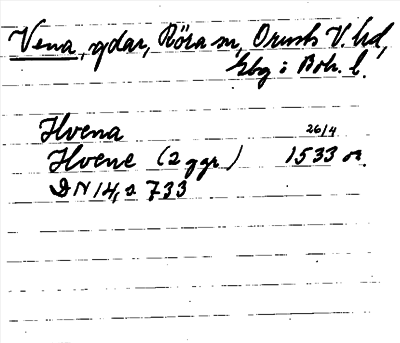 Vena, gdar, Röra sn, Orusts V. hd,
Gbg o Boh. l.
Hvena 26/4
Hvene (2 ggr) 1533 or.
DN 14, s 733